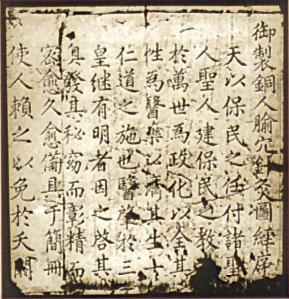 御製銅人腧穴鍼灸圖經序
天以保民之任付諸聖
人聖人建保民之教
於萬世為政化以全其
性為醫藥以濟其生
仁道之施也醫肇於三
皇继有明者因之啓其
真發其秘窈而彰精而
密愈久愈俻且于簡冊
使人賴之以免於夭閼